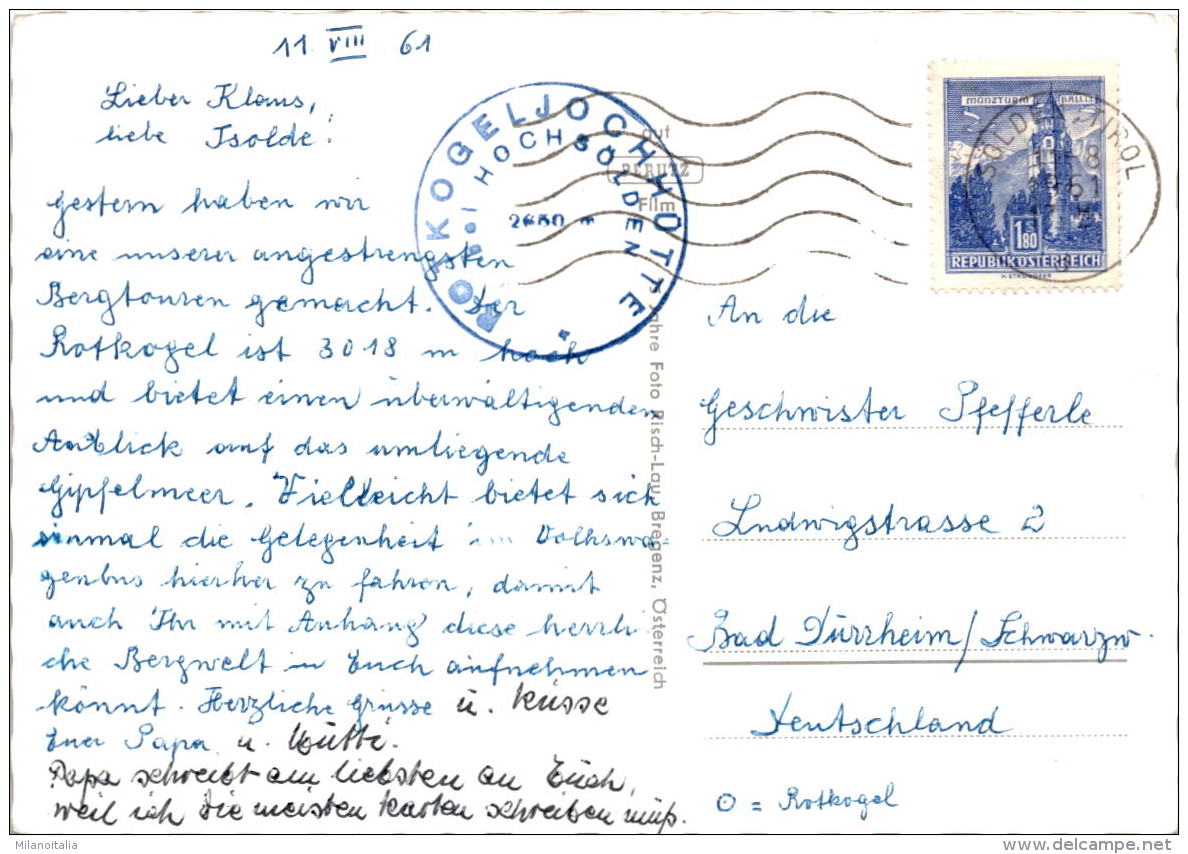 11 VIII 61
Lieber Klaus,
liebe Isolde!
gestern haben wir
eine unserer angestrengsten
Bergtouren gemacht. Der
Rotkogel ist 3018 m hoch
und bietet einen überwältigenden
Anblick auf das umliegende
Gipfelmeer. Vielleicht bietet sich
einmal die Gelegenheit im Volkswa-
genbus hierher zu fahren, damit
auch Ihr mit Anhang diese herrli-
che Bergwelt in Euch aufnehmen
könnt. Herzliche Grüsse u. Küsse
Euer Papa u. Mutti.
Papa schreibt am liebsten an Euch,
weil ich die meisten Karten schreiben muß.
ROTKOGELJOCHHÜTTE
HOCHSÖLDEN
auf
PERUTZ
Film
Foto Risch-Lau, Bregenz, Österreich
MÜNZTURM HALL I.T.
1.80
REPUBLIK ÖSTERREICH
SÖLDEN, TIROL
An die
Geschwister Pfefferle
Ludwigstrasse 2
Bad Dürrheim/Schwarzw.
Deutschland
O = Rotkogel
Milanoitalia
www.delcampe.net